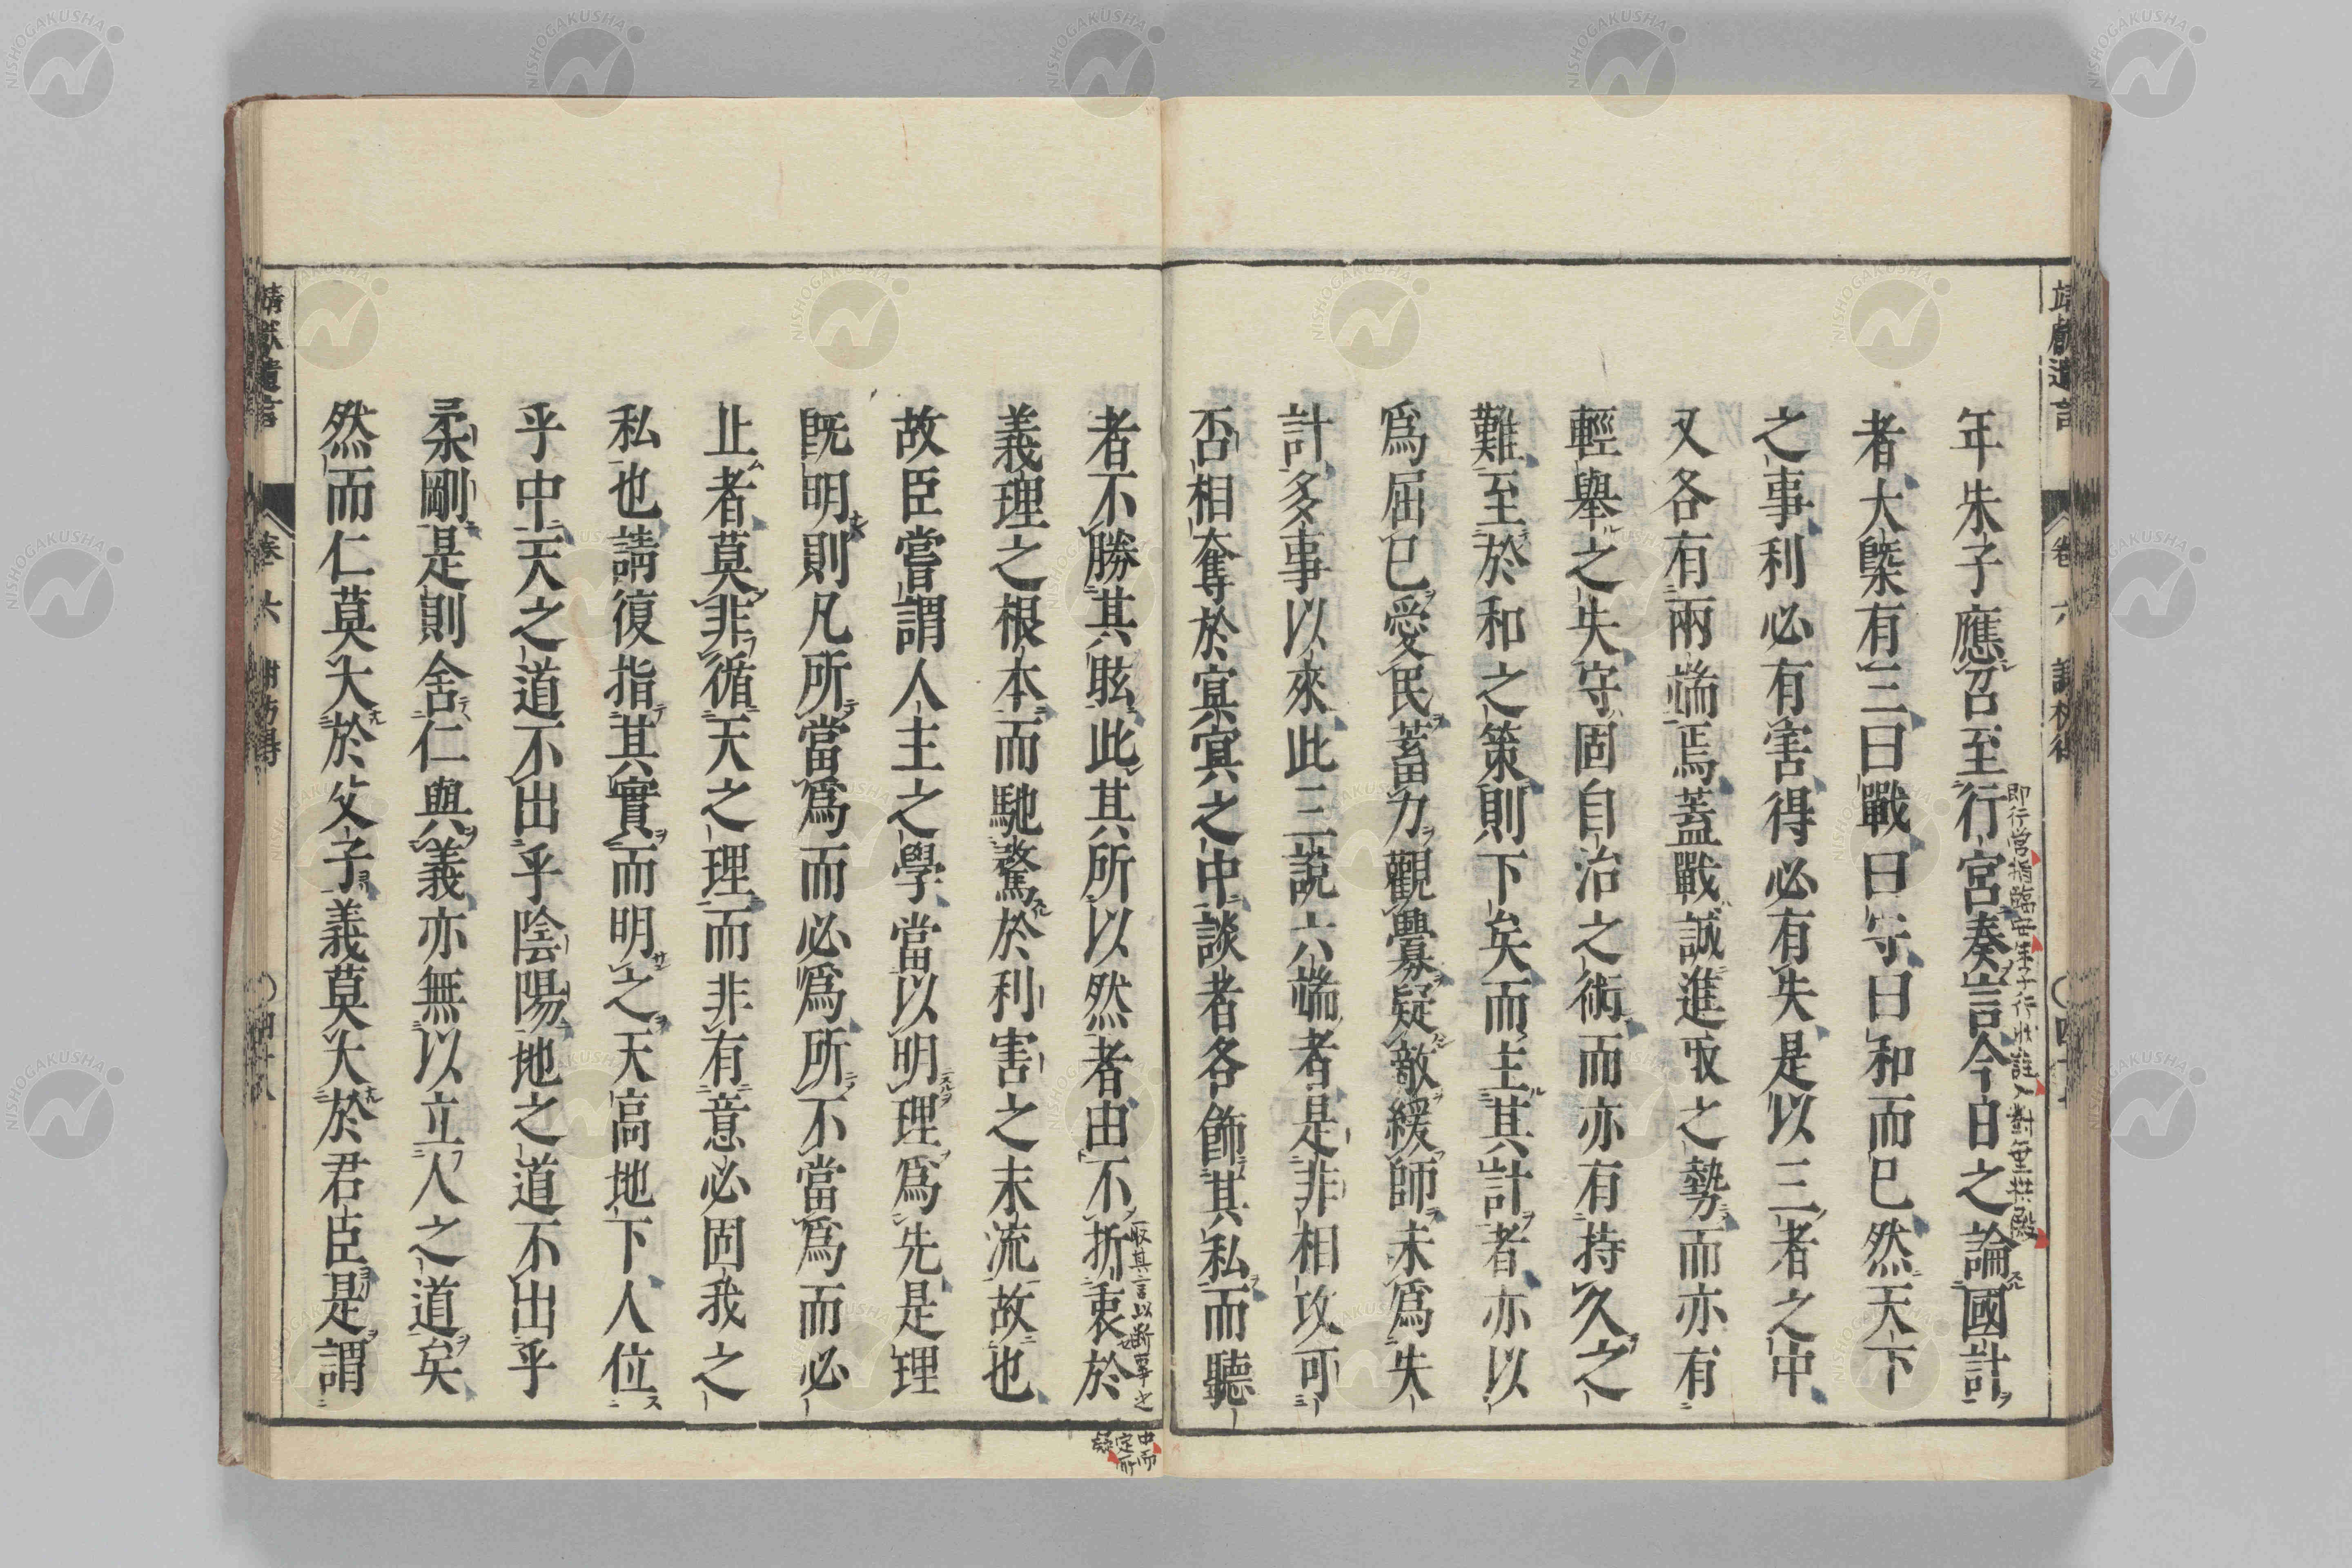 年朱子應召至行宮奏言今日之論國計
即行營指臨安朱子行狀註入對垂拱殿
者大槩有三曰戰曰守曰和而已然天下
之事利必有害得必有失是以三者之中
又各有兩端焉蓋戰誠進取之勢而亦有
輕舉之失守固自治之術而亦有持久之
難至於和之策則下矣而主其計者亦以
爲屈已愛民蓄力觀釁疑敵緩師未爲失
計多事以來此三說六端者是非相攻可
否相奪於冥冥之中談者各飾其私而聽
者不勝其眩此其所以然者由不折衷於
取其言以斷事之
中而定所疑
義理之根本而馳騖於利害之末流故也
故臣嘗謂人主之學當以明理爲先是理
既明則凡所當爲而必爲所不當爲而必
止者莫非循天之理而非有意必固我之
私也請復指其實而明之天高地下人位
乎中天之道不出乎陰陽地之道不出乎
柔剛是則舍仁與義亦無以立人之道矣
然而仁莫大於父子義莫大於君臣是謂
靖獻遺言
卷六
NISHOGAKUSHA